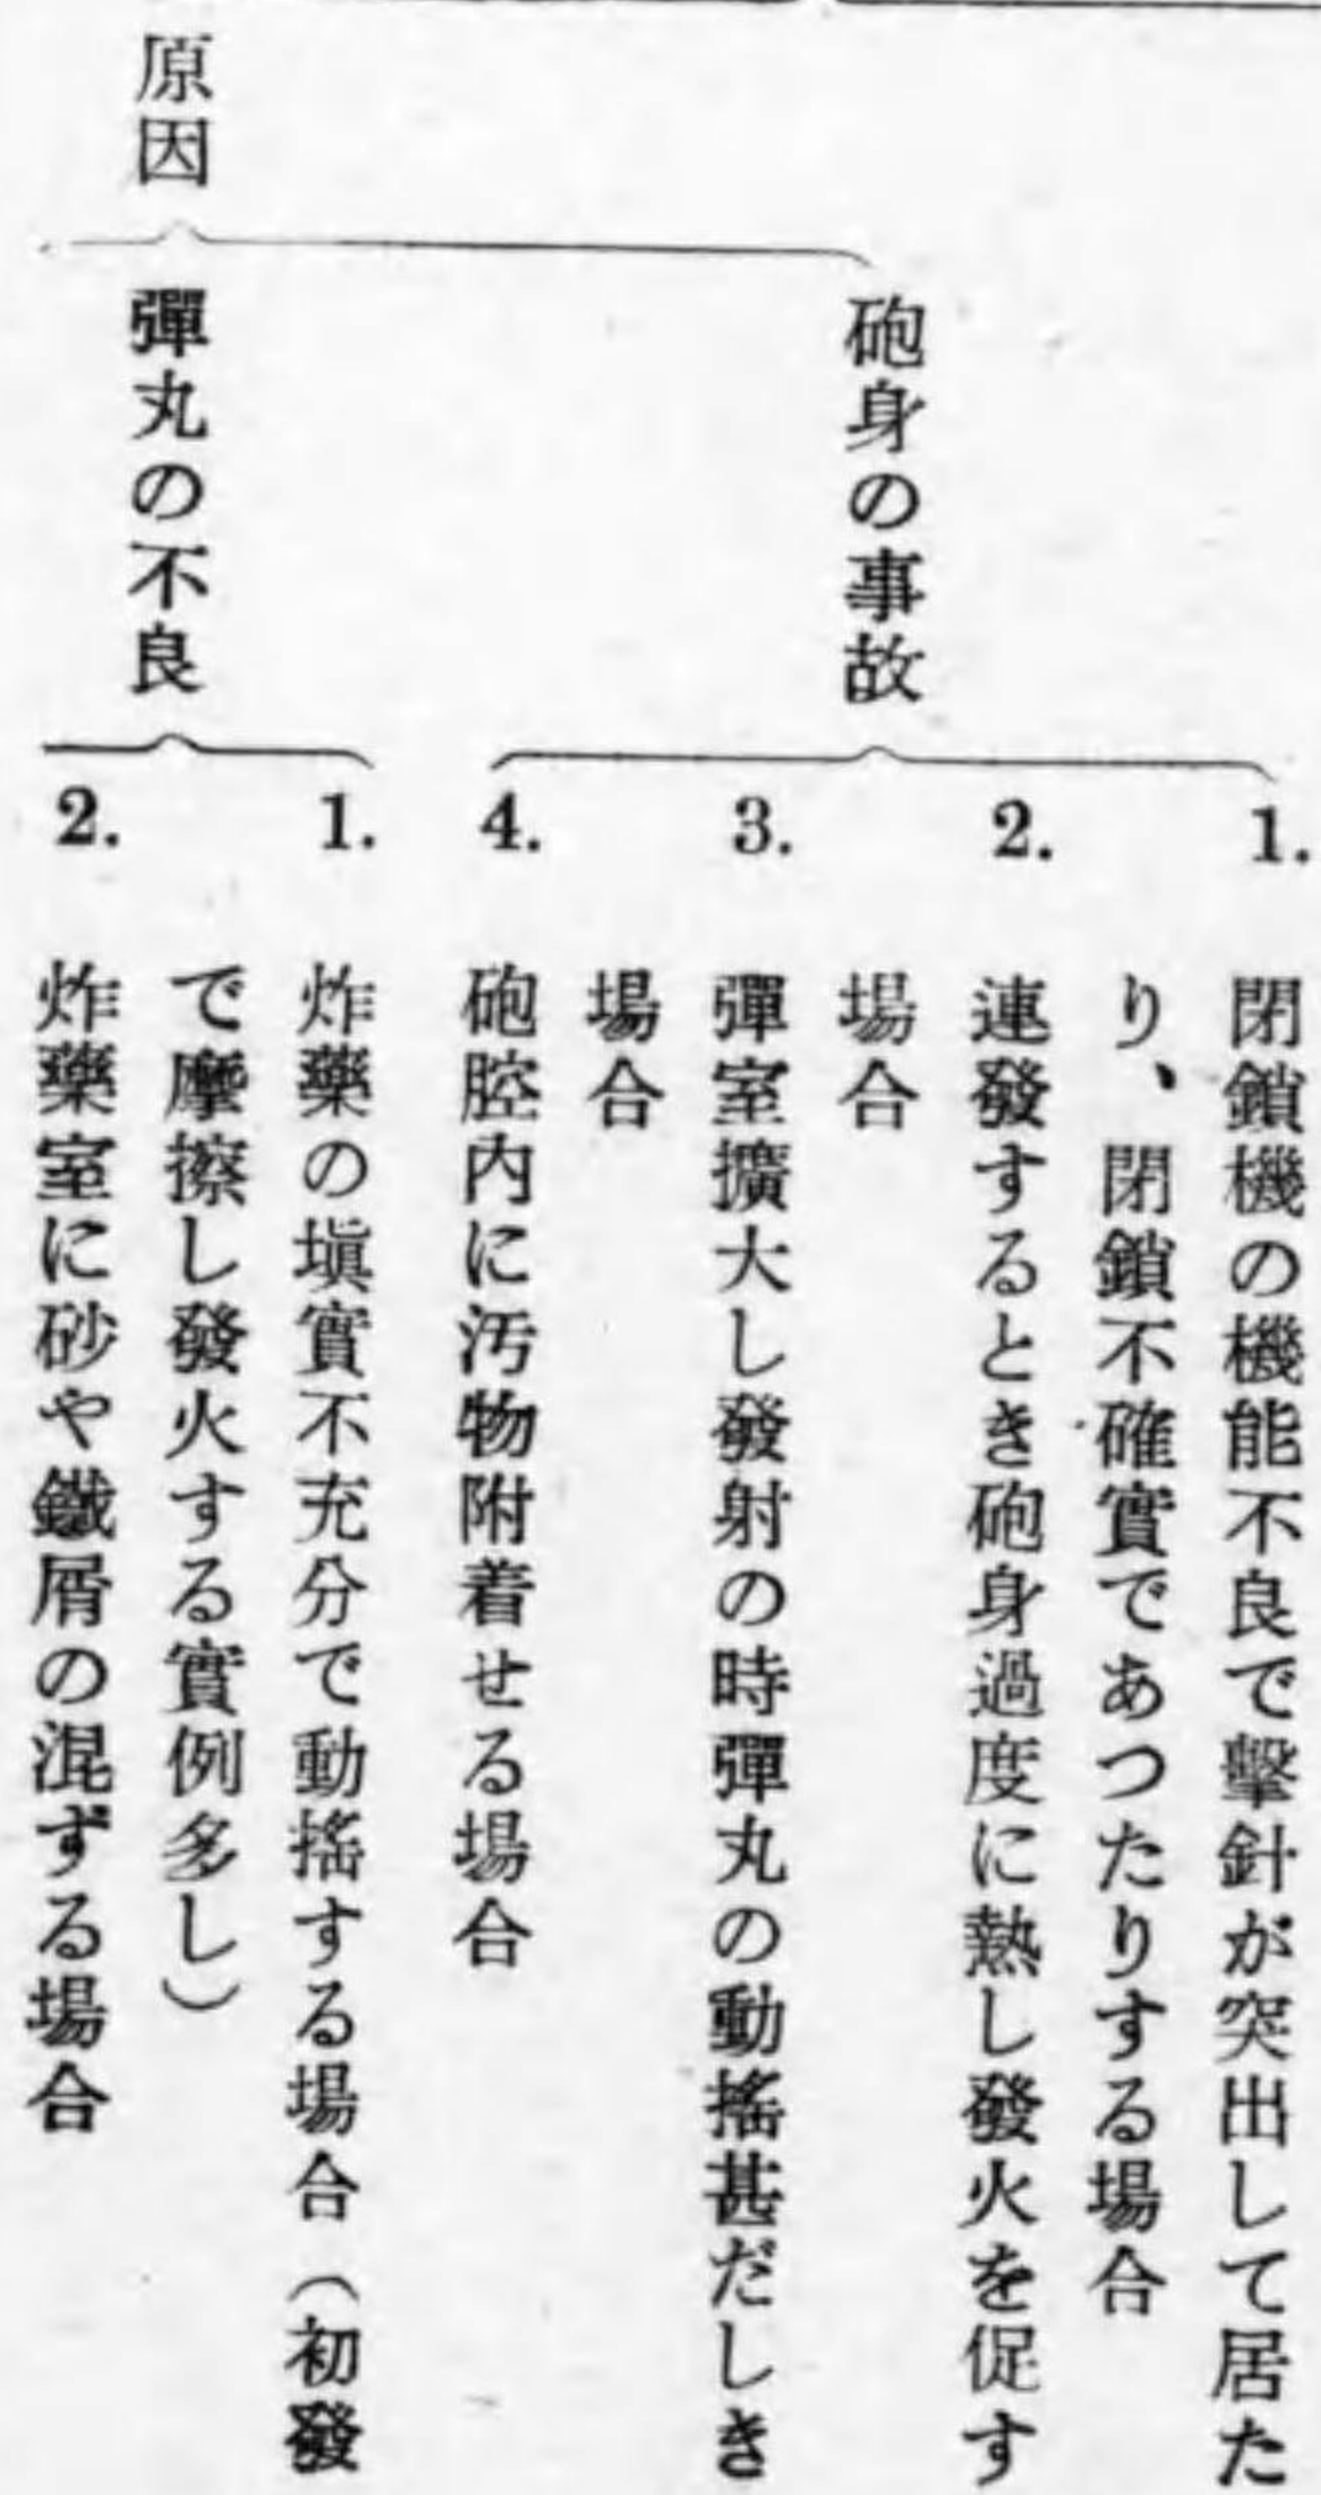 原因
砲身の事故
1. 閉鎖機の機能不良で擊針が突出して居た
り、閉鎖不確實であつたりする場合
2. 連發するとき砲身過度に熱し發火を促す
場合
3. 彈室擴大し發射の時彈丸の動搖甚だしき
場合
4. 砲腔内に汚物附着せる場合
彈丸の不良
1. 炸藥の塡實不充分で動搖する場合（初發
で摩擦し發火する實例多し）
2. 炸藥室に砂や鐵屑の混ずる場合